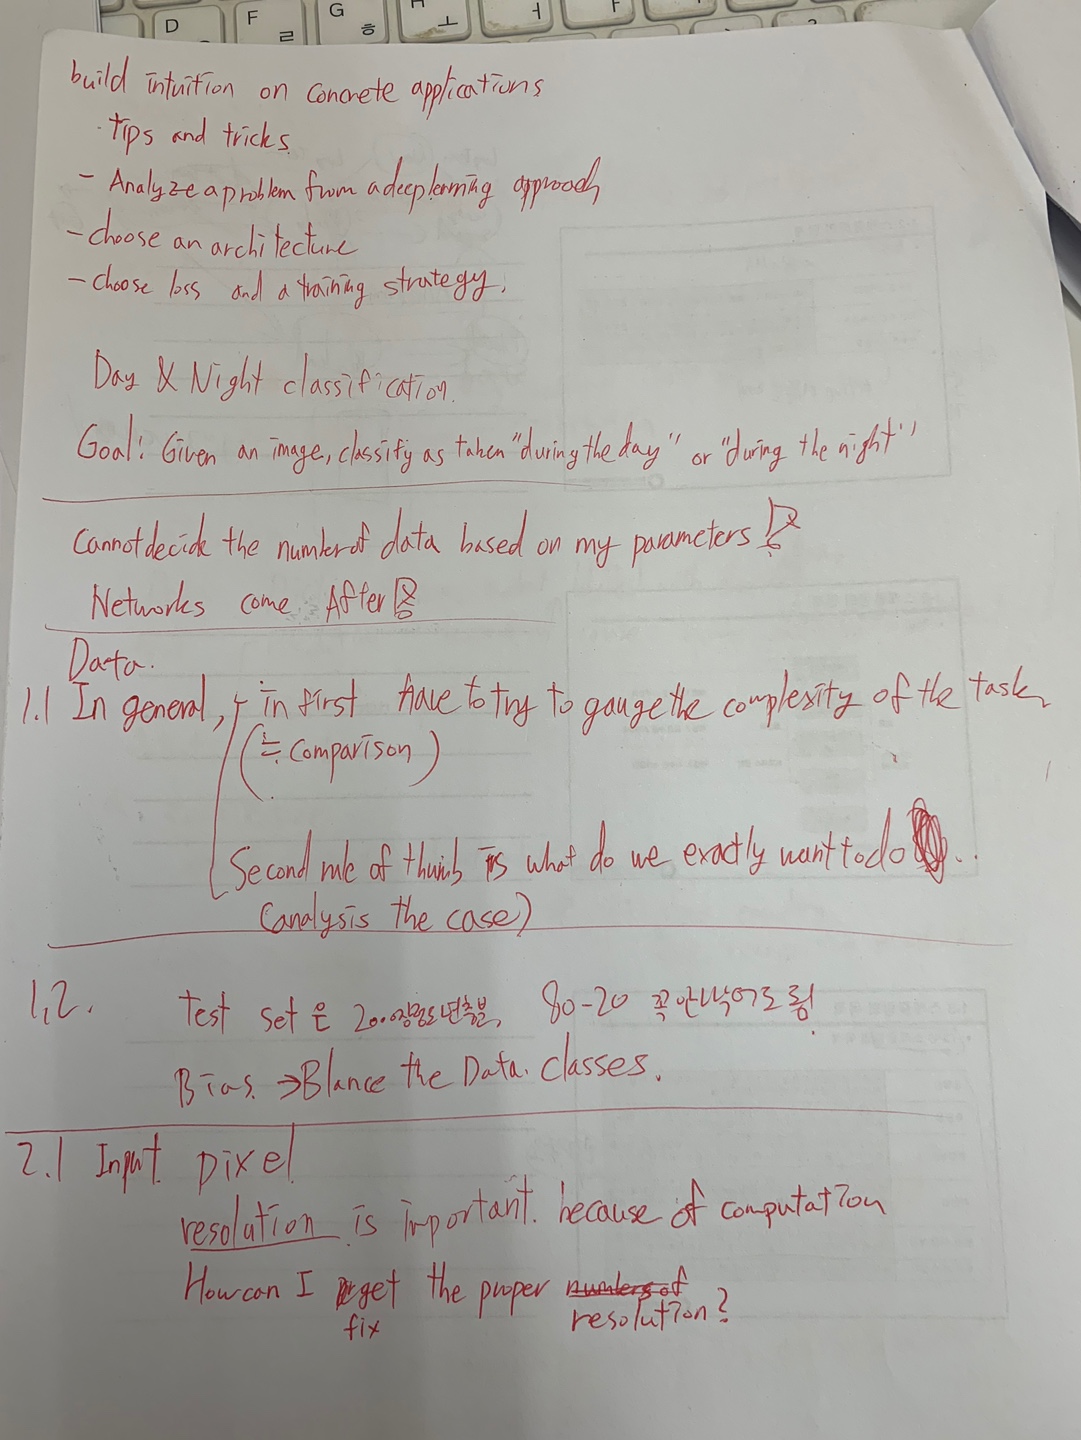 D
F
ㄹ
G
ㅎ
ㅗ
ㅓ
build intuition on concrete applications
· tips and tricks
- Analyze a problem from a deep learning approach
- choose an architecture
- choose loss and a training strategy.
Day & Night classification.
Goal: Given an image, classify as taken "during the day" or "during the night"
Cannot decide the number of data based on my parameters
Networks come After
Data.
1.1 In general, in first have to try to gauge the complexity of the task
(≒ comparison)
Second rule of thumb is what do we exactly want to do ..
(analysis the case)
1,2. Test set 은 2000장정도면충분, 80-20 꼭안나눠도됨
Bias → Blance the Data. classes.
2.1 Input pixel
resolution is important. because of computation
How can I get the proper numbers of
fix resolution?